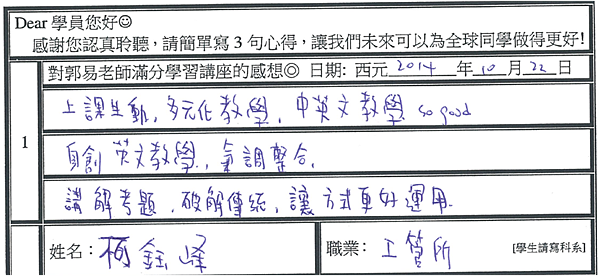 Dear 學員您好☺
感謝您認真聆聽，請簡單寫 3 句心得，讓我們未來可以為全球同學做得更好!
對郭易老師滿分學習講座的感想◎ 日期: 西元 2014 年 10 月 22 日
上課生動，多元化教學，中英文教學 so good
1
自創英文教學，氣調整合，
講解考題，破解傳統，讓方式更好運用.
姓名： 柯鈺峰 職業： 工管所 [學生請寫科系]